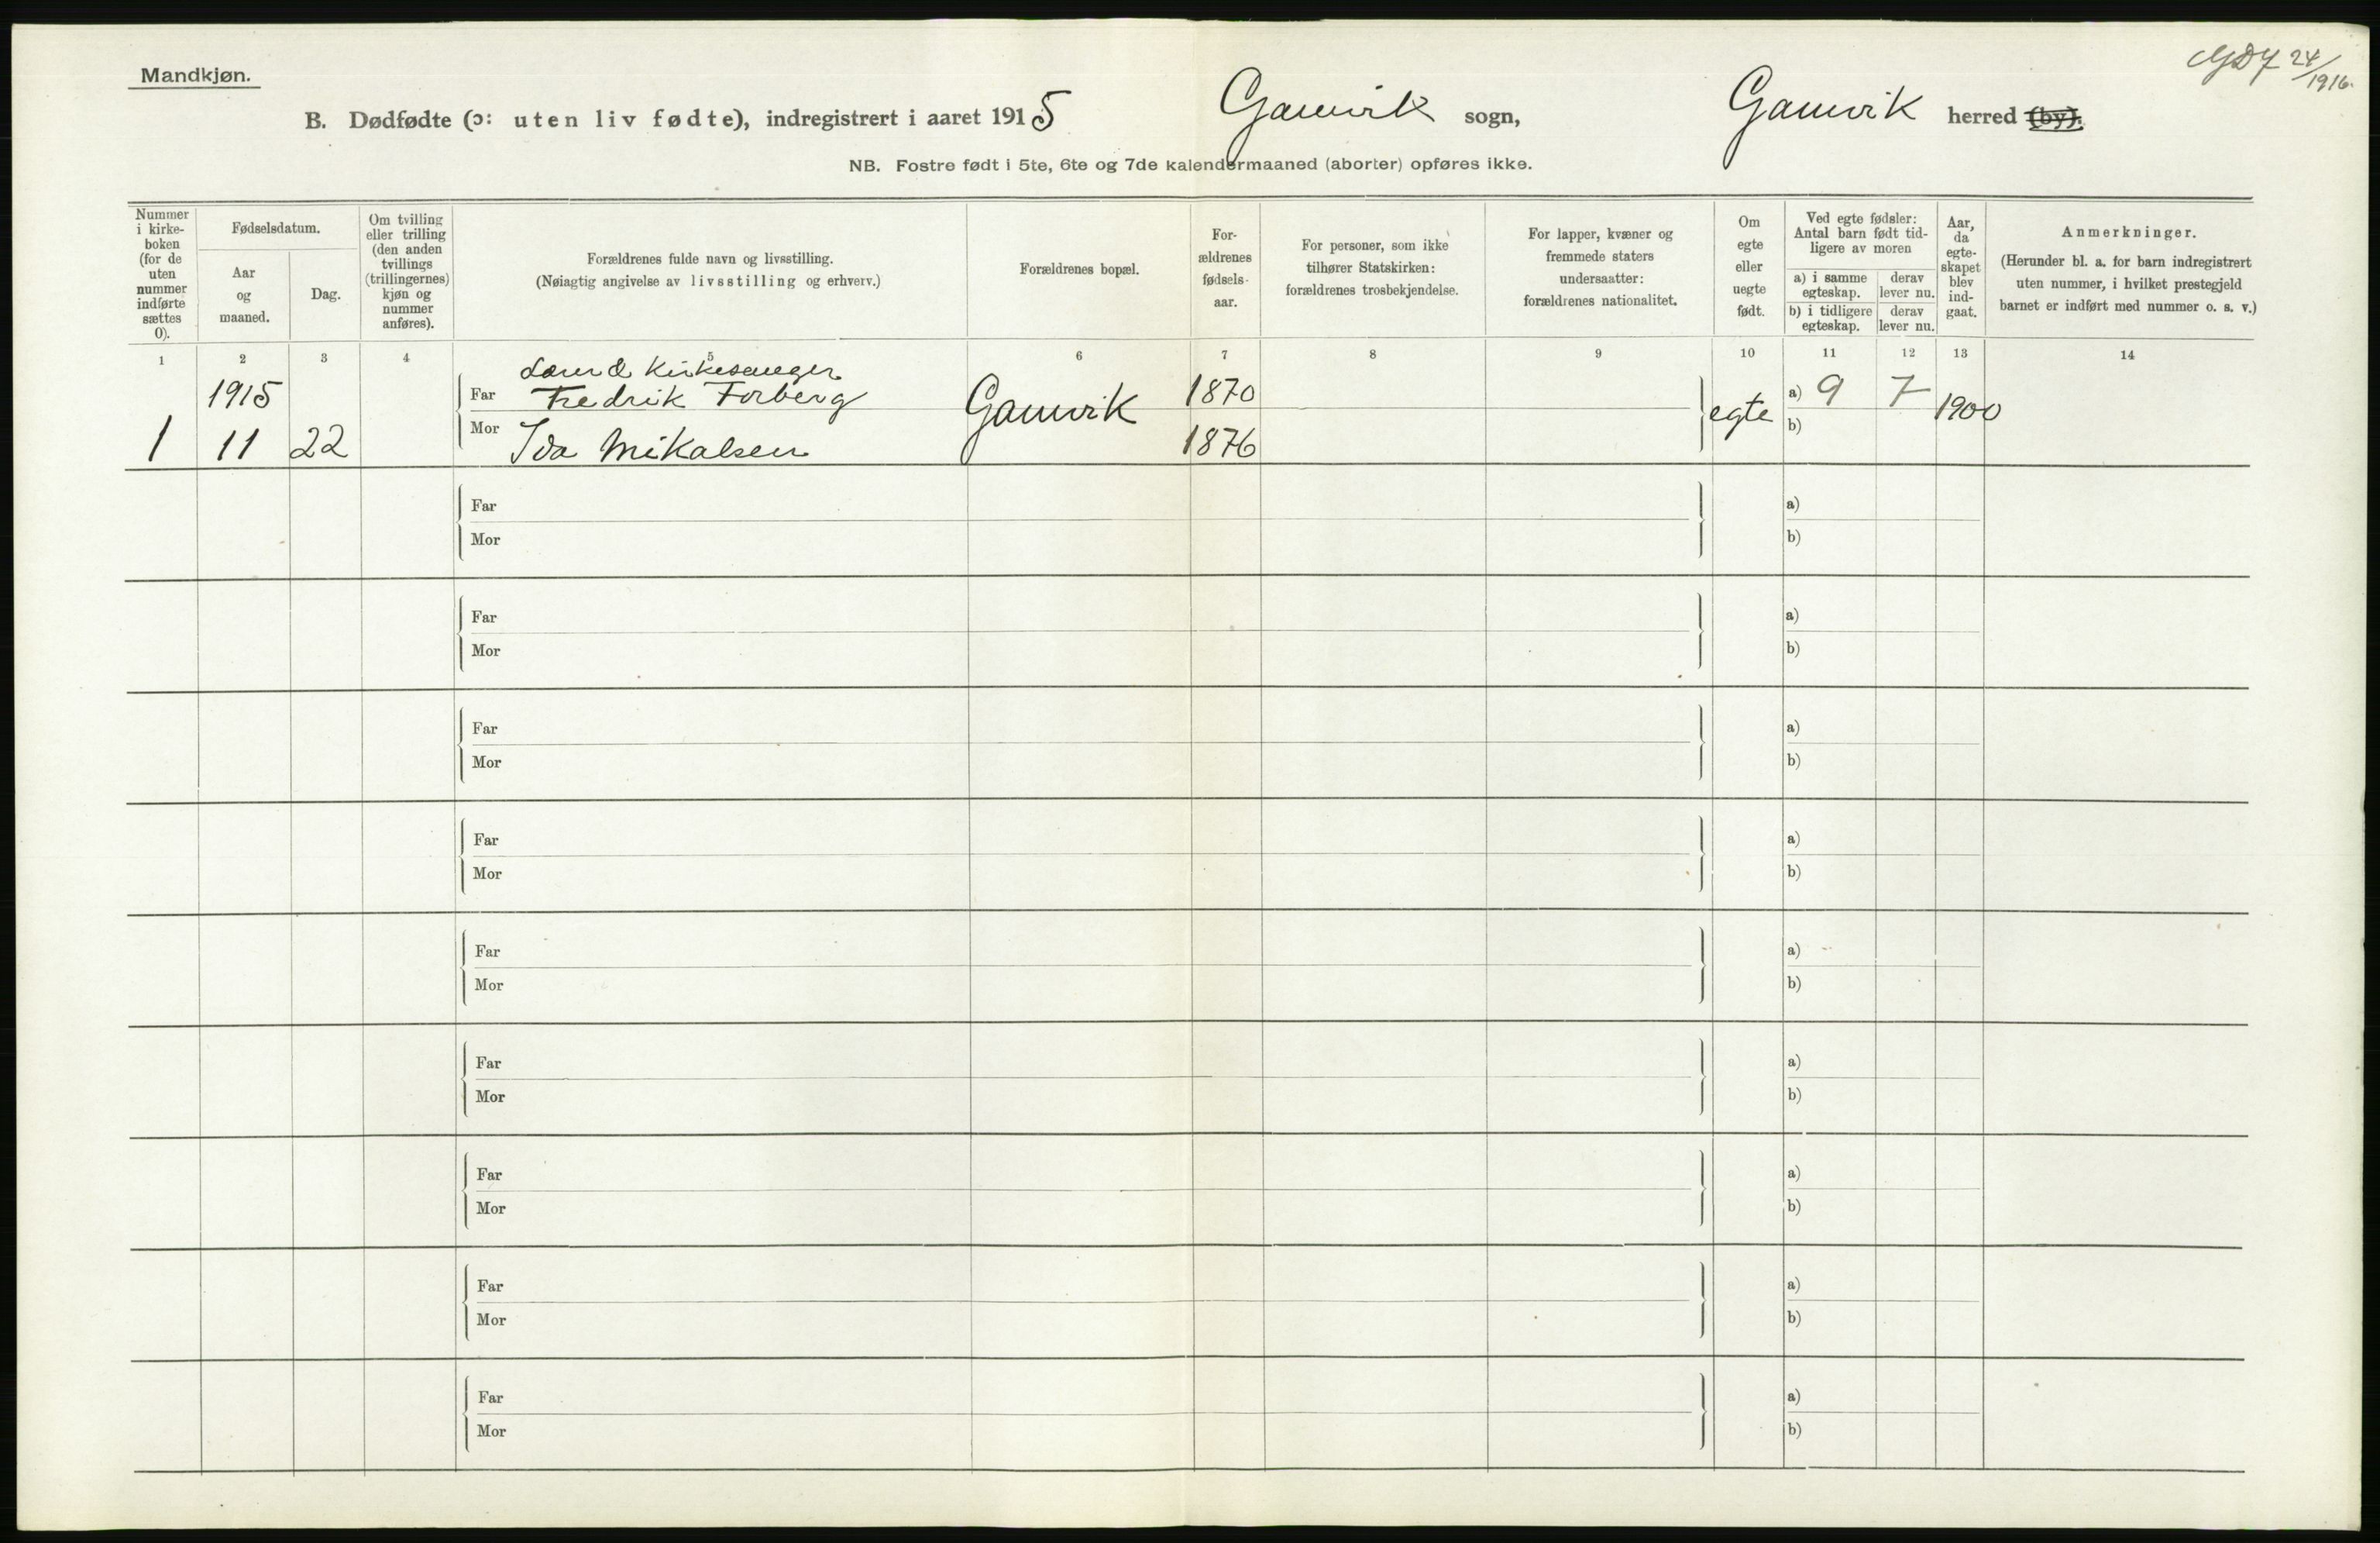 Mandkjøn.
B. Dødfødte (ɔ: uten liv fødte), indregistrert i aaret 1915 Gamvik sogn, Gamvik herred (by).
24/1916.
NB. Fostre født i 5te, 6te og 7de kalendermaaned (aborter) opføres ikke.
Nummer
i kirke-
boken
(for de
uten
nummer
indførte
sættes
0).
Fødselsdatum.
Aar
og
maaned.
Dag.
Om tvilling
eller trilling
(den anden
tvillings
(trillingernes)
kjøn og
nummer
anføres).
Forældrenes fulde navn og livsstilling.
(Nøiagtig angivelse av livsstilling og erhverv.)
Forældrenes bopæl.
For-
ældrenes
fødsels-
aar.
For personer, som ikke
tilhører Statskirken:
forældrenes trosbekjendelse.
For lapper, kvæner og
fremmede staters
undersaatter:
forældrenes nationalitet.
Om
egte
eller
uegte
født.
Ved egte fødsler:
Antal barn født tid-
ligere av moren
a) i samme
egteskap.
derav
lever nu.
b) i tidligere
egteskap.
derav
lever nu.
Aar,
da
egte-
skapet
blev
ind-
gaat.
Anmerkninger.
(Herunder bl. a. for barn indregistrert
uten nummer, i hvilket prestegjeld
barnet er indført med nummer o. s. v.)
1 2 3 4 5 6 7 8 9 10 11 12 13 14
Kirkesanger
1915 Far Fredrik Forberg Gamvik 1870 egte a) 9 7 1900
1 11 22 Mor Ida Mikalsen 1876 b)
Far a)
Mor b)
Far a)
Mor b)
Far a)
Mor b)
Far a)
Mor b)
Far a)
Mor b)
Far a)
Mor b)
Far a)
Mor b)
Far a)
Mor b)
Far a)
Mor b)